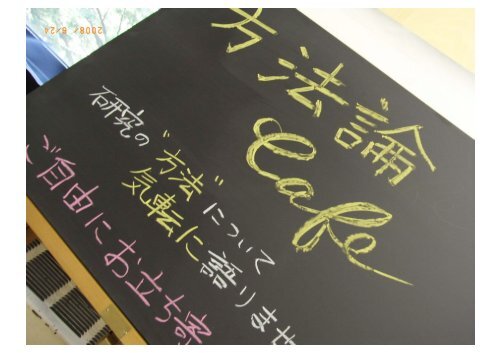 方法論
Cafe
研究の"方法"について
気転に語りませ
ご自由にお立ち寄